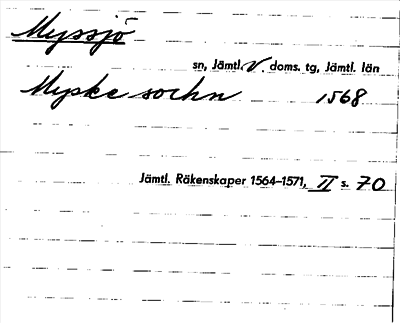 Myssjö
sn, Jämtl. V. doms. tg, Jämtl. län
Myske sochn 1568
Jämtl. Räkenskaper 1564–1571, II s. 70